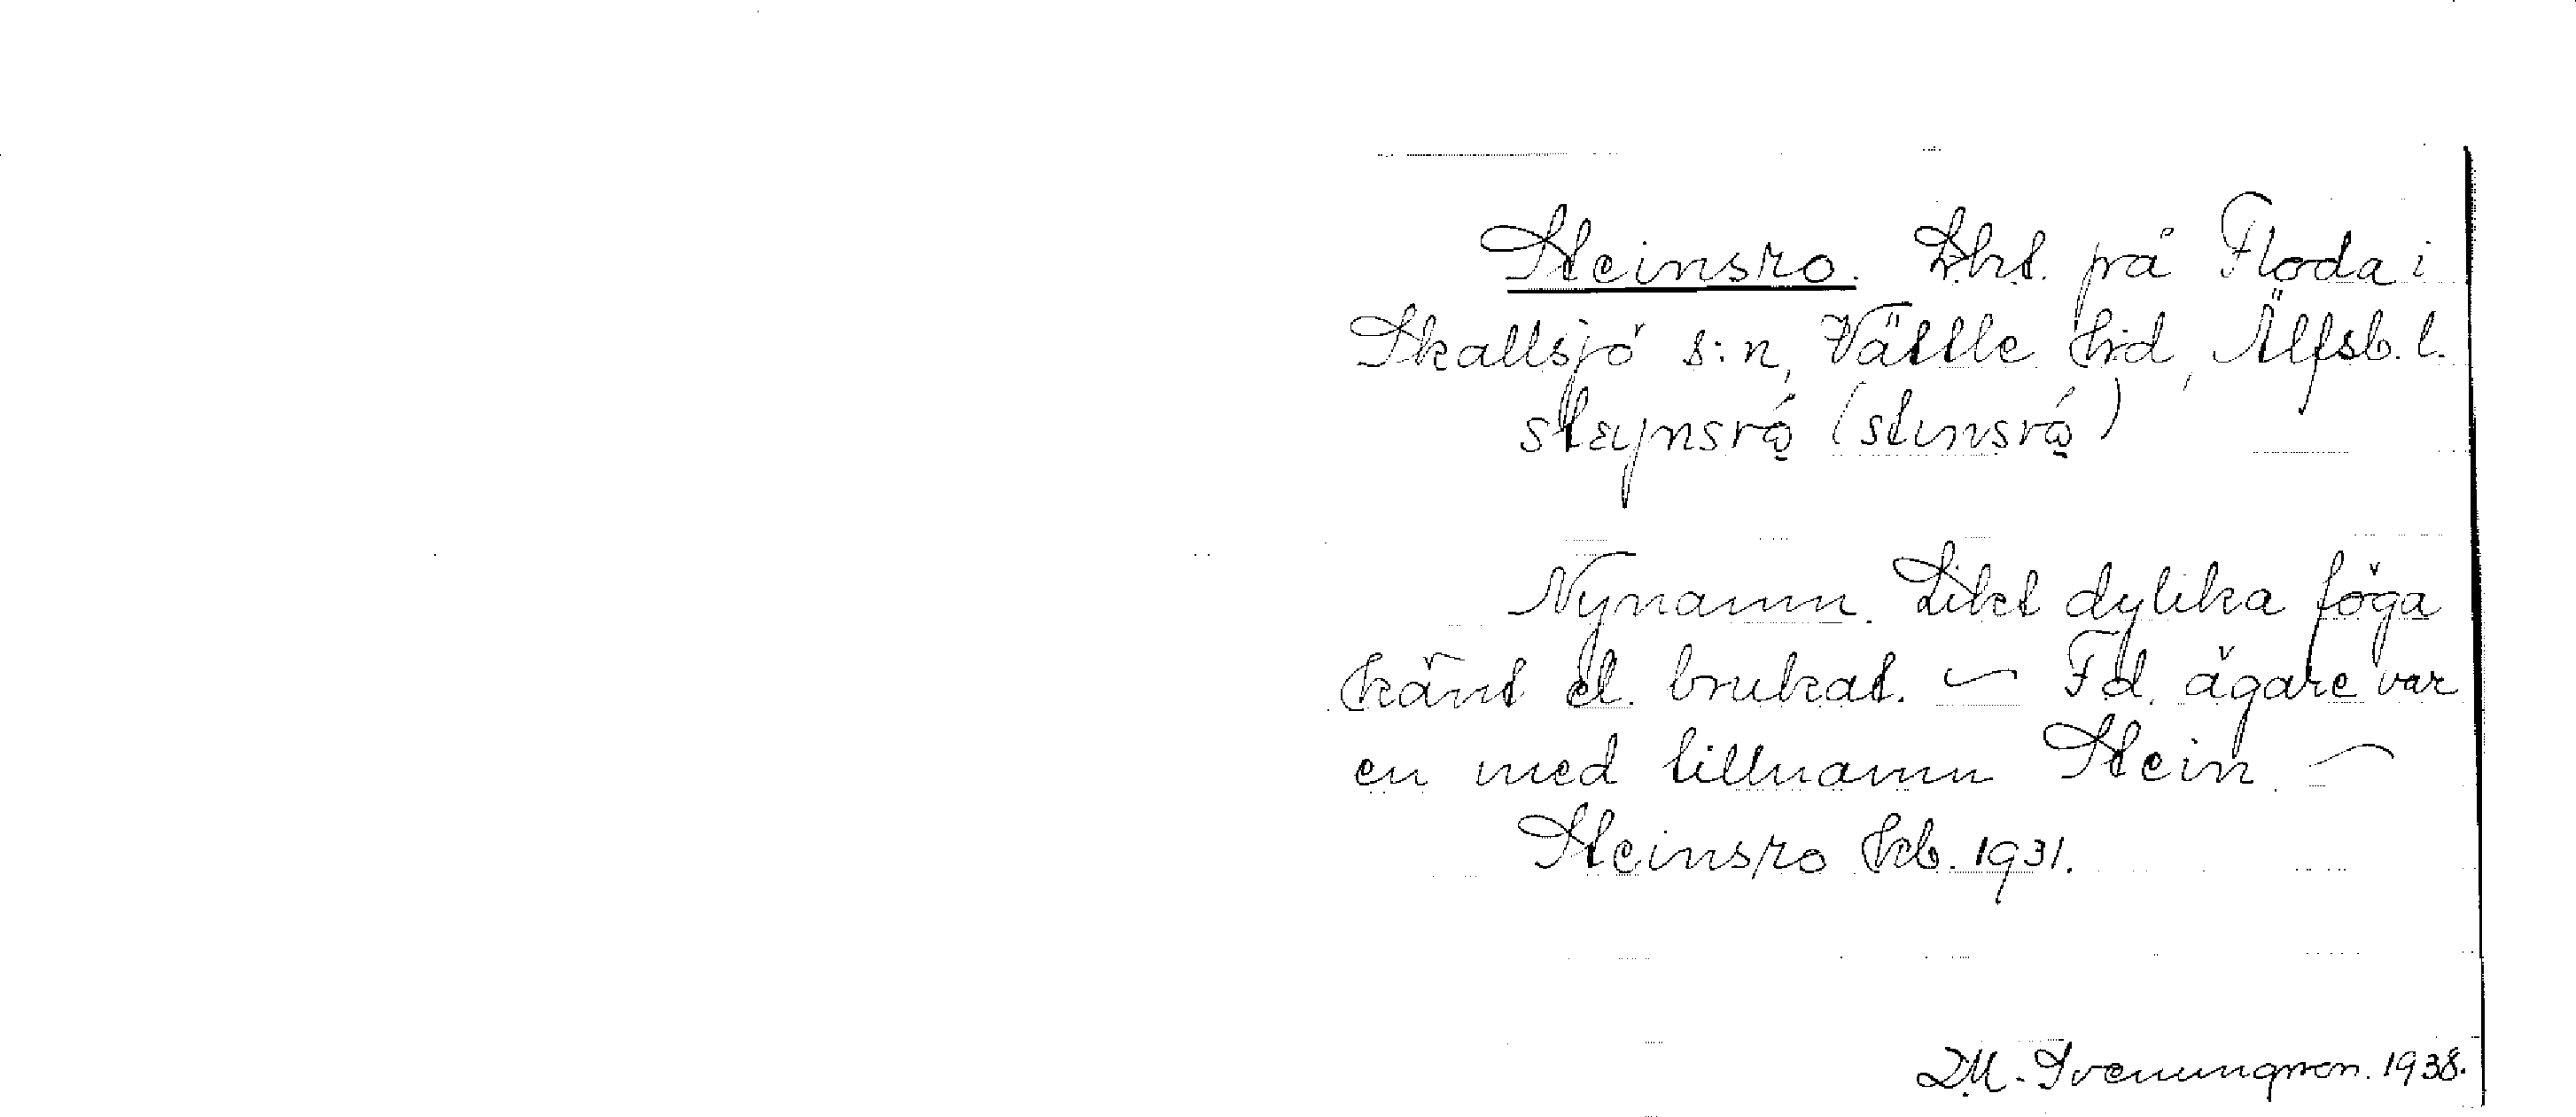 Steinsro. Lht. på Floda i
Skallsjö s:n, Vättle hd, Älfsb. l.
stæynsró (stinsró)
Nynamn. Likt dylika föga
känt el. brukat. – F.d. ägare var
en med tillnamn Stein –
Steinsro kb. 1931.
D.M. Svenungsson. 1938.